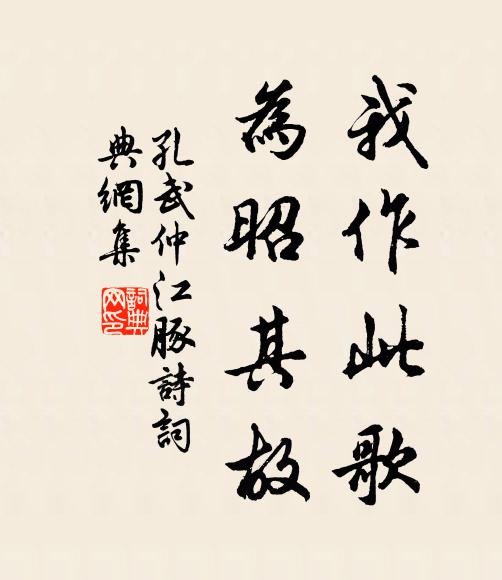 我作此歌
為昭其故
孔武仲江豚詩詞
典網集
詞典
网印